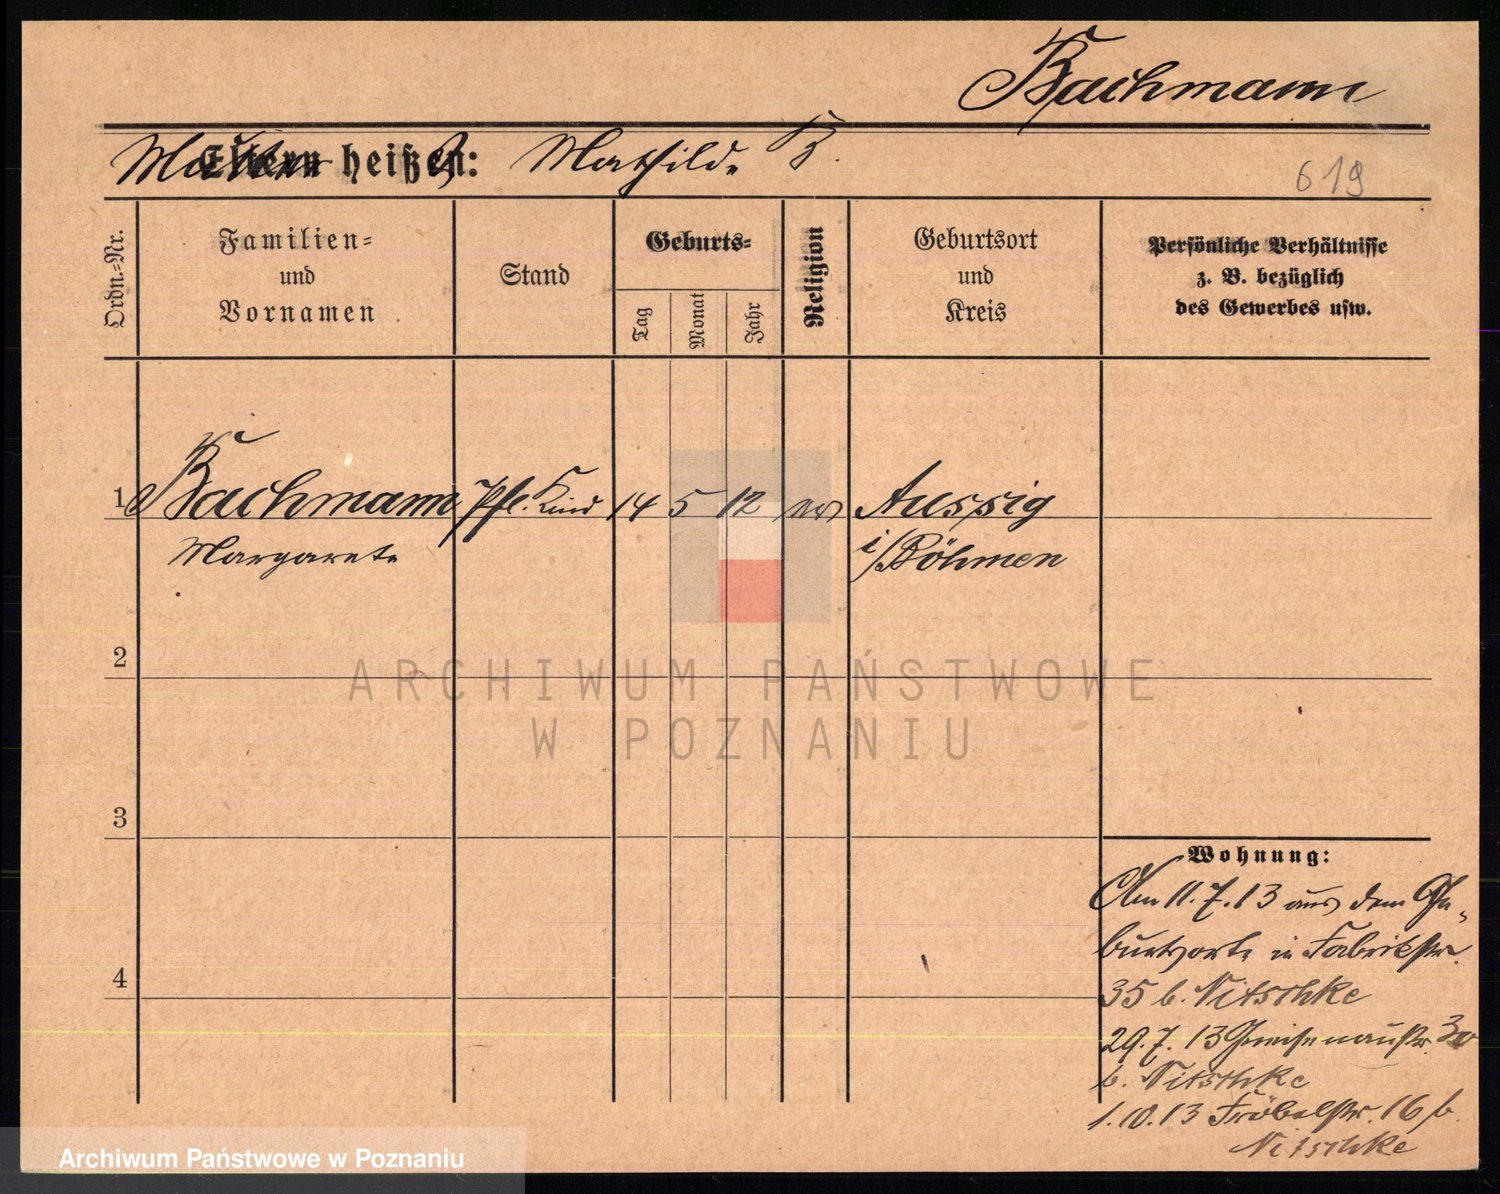 Bachmann
Mutter heißt: Mathilde B.
619
Ordn.-Nr.
Familien-
und
Vornamen
Stand
Geburts-
Tag
Monat
Jahr
Religion
Geburtsort
und
Kreis
Persönliche Verhältnisse
z. B. bezüglich
des Gewerbes usw.
1 Bachmann Pfl. Kind 14 5 12 ev Aussig
Margarete i/Böhmen
2
ARCHIWUM PAŃSTWOWE
W POZNANIU
3
Wohnung:
Am 11.7.13 aus dem Ge-
burtsorte in Fabrikstr.
4
35 b. Nitschke
29.7.13 Gneisenaustr. 30
b. Nitschke
1.10.13 Fröbelstr. 16 b.
Nitschke
Archiwum Państwowe w Poznaniu